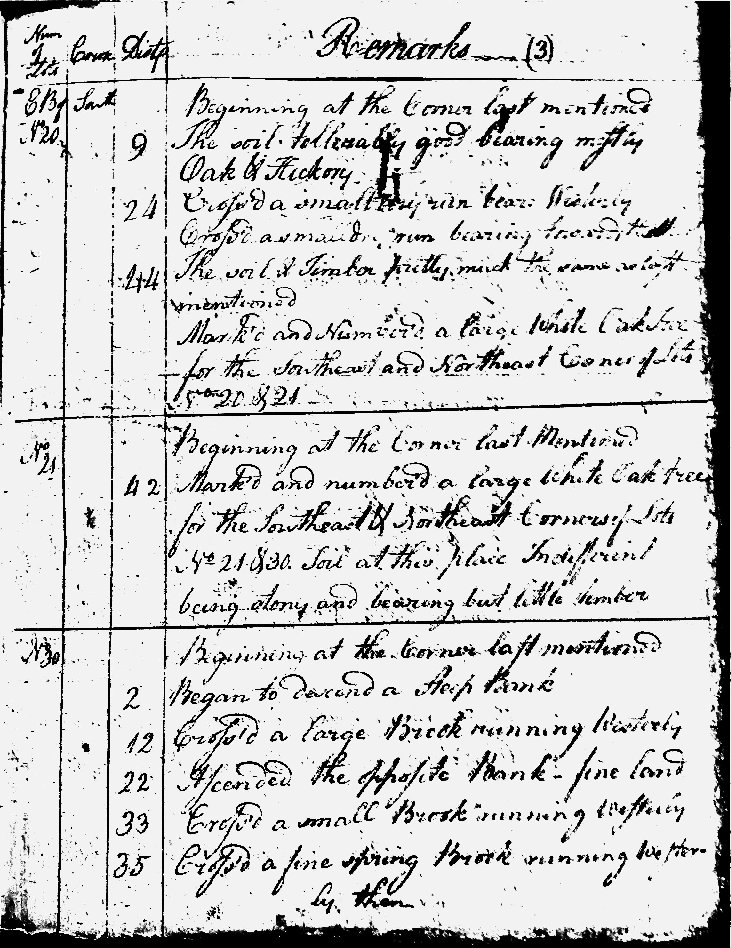 Num Cours Dists Remarks (3)
of
Lots
E By South Beginning at the Corner last mentioned
No 20. 9 The soil tollerably good bearing mostly
Oak & Hickory
24 Cross'd a small run bears Westerly
Cross'd a small run bearing towards
44 The soil & Timber pretty much the same as last
mentioned
Mark'd and Number'd a large White Oak tree
for the Southeast and Northeast Corners of Lots
Nos 20 & 21
No 21 Beginning at the Corner last Mentioned
42 Mark'd and number'd a large White Oak tree
for the Southeast & Northeast Corners of Lots
No 21 & 30. Soil at this place Indifferent
being stony and bearing but little timber
No 30 Beginning at the Corner last mentioned
2 Began to decend a Steep Bank
12 Cross'd a large Brook running Westerly
22 Ascended the opposite Bank - fine land
33 Cross'd a small Brook running Westerly
35 Cross'd a fine spring Brook running Wester-
ly then